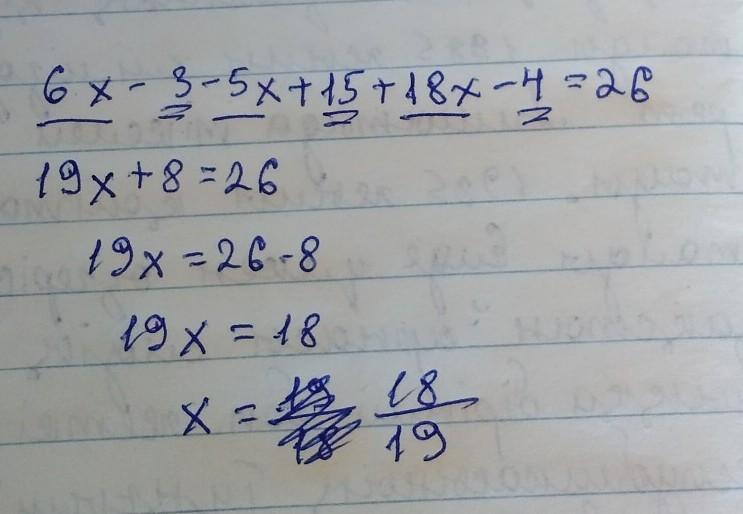 6x - 3 - 5x + 15 + 18x - 4 = 26
19x + 8 = 26
19x = 26 - 8
19x = 18
x = 18/19